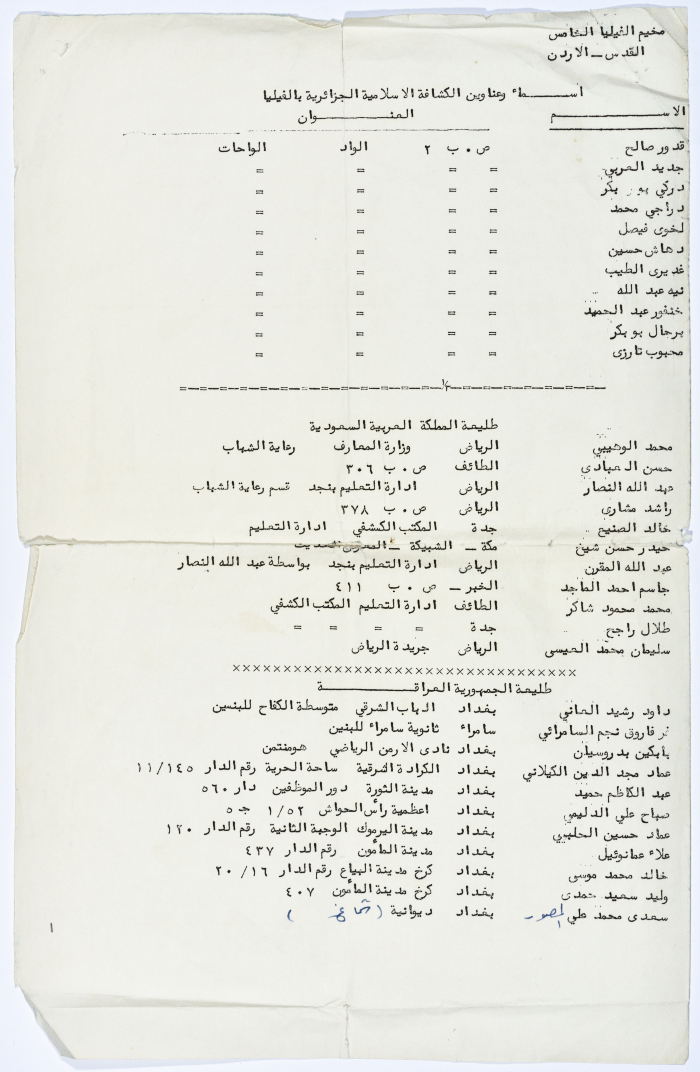 مخيم الفيليا الخامس
القدس ــ الاردن
اسـماء وعناوين الكشافة الاسلامية الجزائرية بالفيليا
الاســـم العنـــوان
قدور صالح ص ٠ ب ٢ الواد الواحات
جديد العربي = = = =
دركي بو بكر = = = =
دراجي محمد = = = =
لخوى فيصل = = = =
دهاش حسين = = = =
غديرى الطيب = = = =
نيه عبد الله = = = =
خنفور عبد الحميد = = = =
برحال بو بكر = = = =
محبوب تارزى = = = =
طليعة المملكة العربية السعودية
محمد الوهيبي الرياض وزارة المعارف رعاية الشباب
حسن العبادي الطائف ص ٠ ب ٣٠٦
عبد الله النصار الرياض ادارة التعليم بنجد قسم رعاية الشباب
راشد مشارى الرياض ص ٠ ب ٣٧٨
خالد الصنيع جدة المكتب الكشفي ادارة التعليم
حيدر حسن شيخ مكة ــ الشبيكة ــ
عبد الله المقرن الرياض ادارة التعليم بنجد بواسطة عبد الله النصار
جاسم احمد الماجد الخبر ــ ص ٠ ب ٤١١
محمد محمود شاكر الطائف ادارة التعليم المكتب الكشفي
طلال راجح جدة = = = =
سليمان محمد العيسى الرياض جريدة الرياض
×××××××××××××××××××××××××××××××××××
طليعة الجمهورية العراقـــة
داود رشيد العاني بغداد الباب الشرقي متوسطة الكفاح للبنين
فاروق نجم السامرائي سامراء ثانوية سامراء للبنين
يابكين بدروسيان بغداد نادى الارمن الرياضي هومنتمن
عماد مجد الدين الكيلاني بغداد الكرادة الشرقية ساحة الحرية رقم الدار ١١/١٤٥
عبد الكاظم حميد بغداد مدينة الثورة دور الموظفين دار ٥٦٠
صباح علي الدليمي بغداد اعظمية رأس الحواش ١/٥٢ ج ٥
عماد حسين الحلبي بغداد مدينة اليرموك الوجبة الثانية رقم الدار ١٢٠
علاء عمانوئيل بغداد مدينة المأمون رقم الدار ٤٣٧
خالد محمد موسى بغداد كرخ مدينة البياع رقم الدار ٢٠/١٦
وليد سعيد حمدى بغداد كرخ مدينة المأمون ٤٠٧
سعدى محمد علي المصور بغداد ديوانية
١